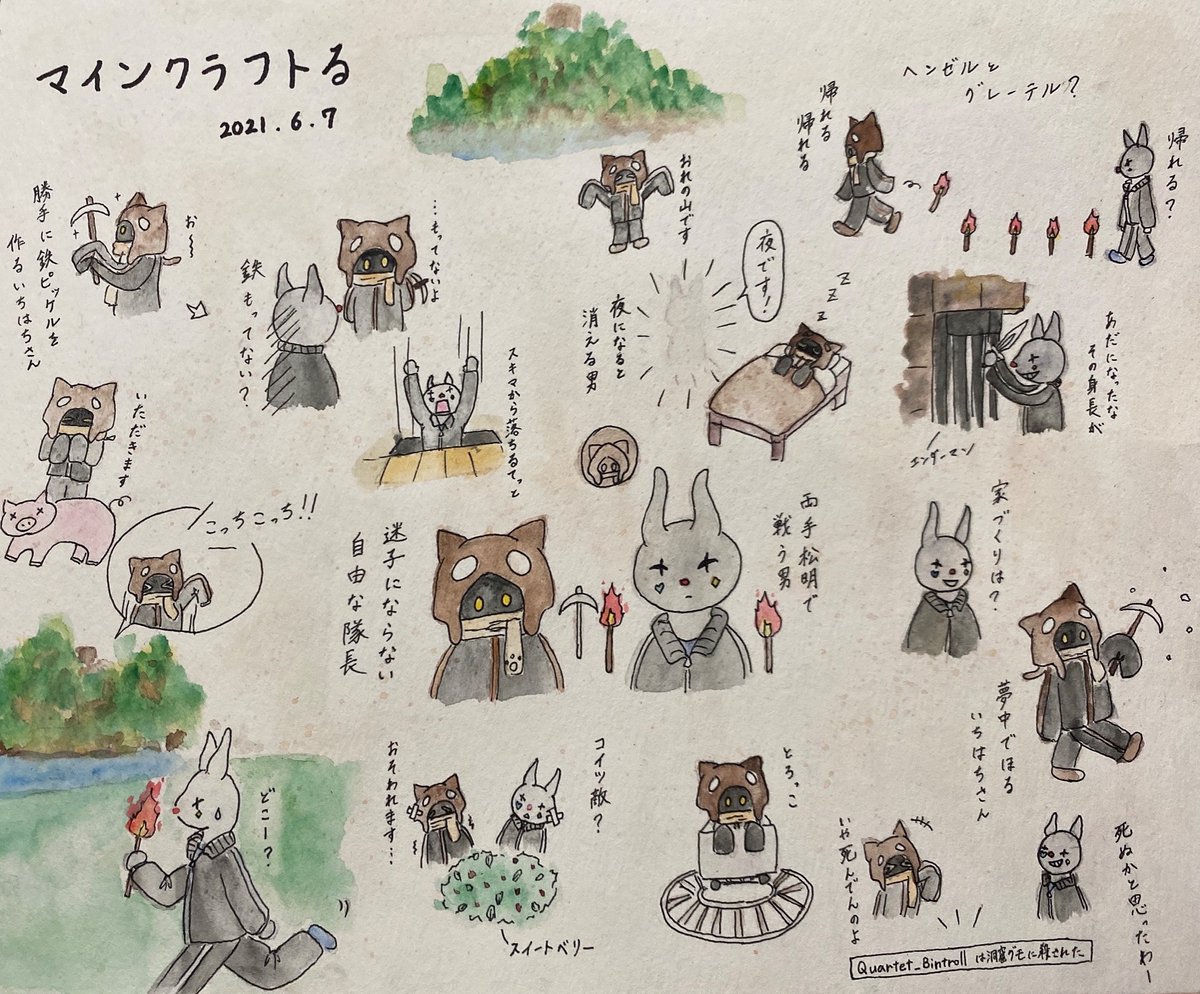 マインクラフトる
2021.6.7
ヘンゼルと
グレーテル?
帰れる
帰れる
帰れる?
おれの山です
勝手に鉄ピッゲルを
作るいちはちさん
お〜〜
鉄もってない?
…もってないよ
スキマから落ちるてっと
夜です!
z z z
夜になると
消える男
あだになったな
その身長が
エンダーマン
いただきます
こっちこっち!!
迷子にならない
自由な隊長
両手松明で
戦う男
家づくりは?
夢中でほる
いちはちさん
どこー?
おそわれます…
コイツ敵?
スイートベリー
とろっこ
いや死んでんのよ
死ぬかと思ったわー
Quartet_Bintroll は洞窟グモに殺された